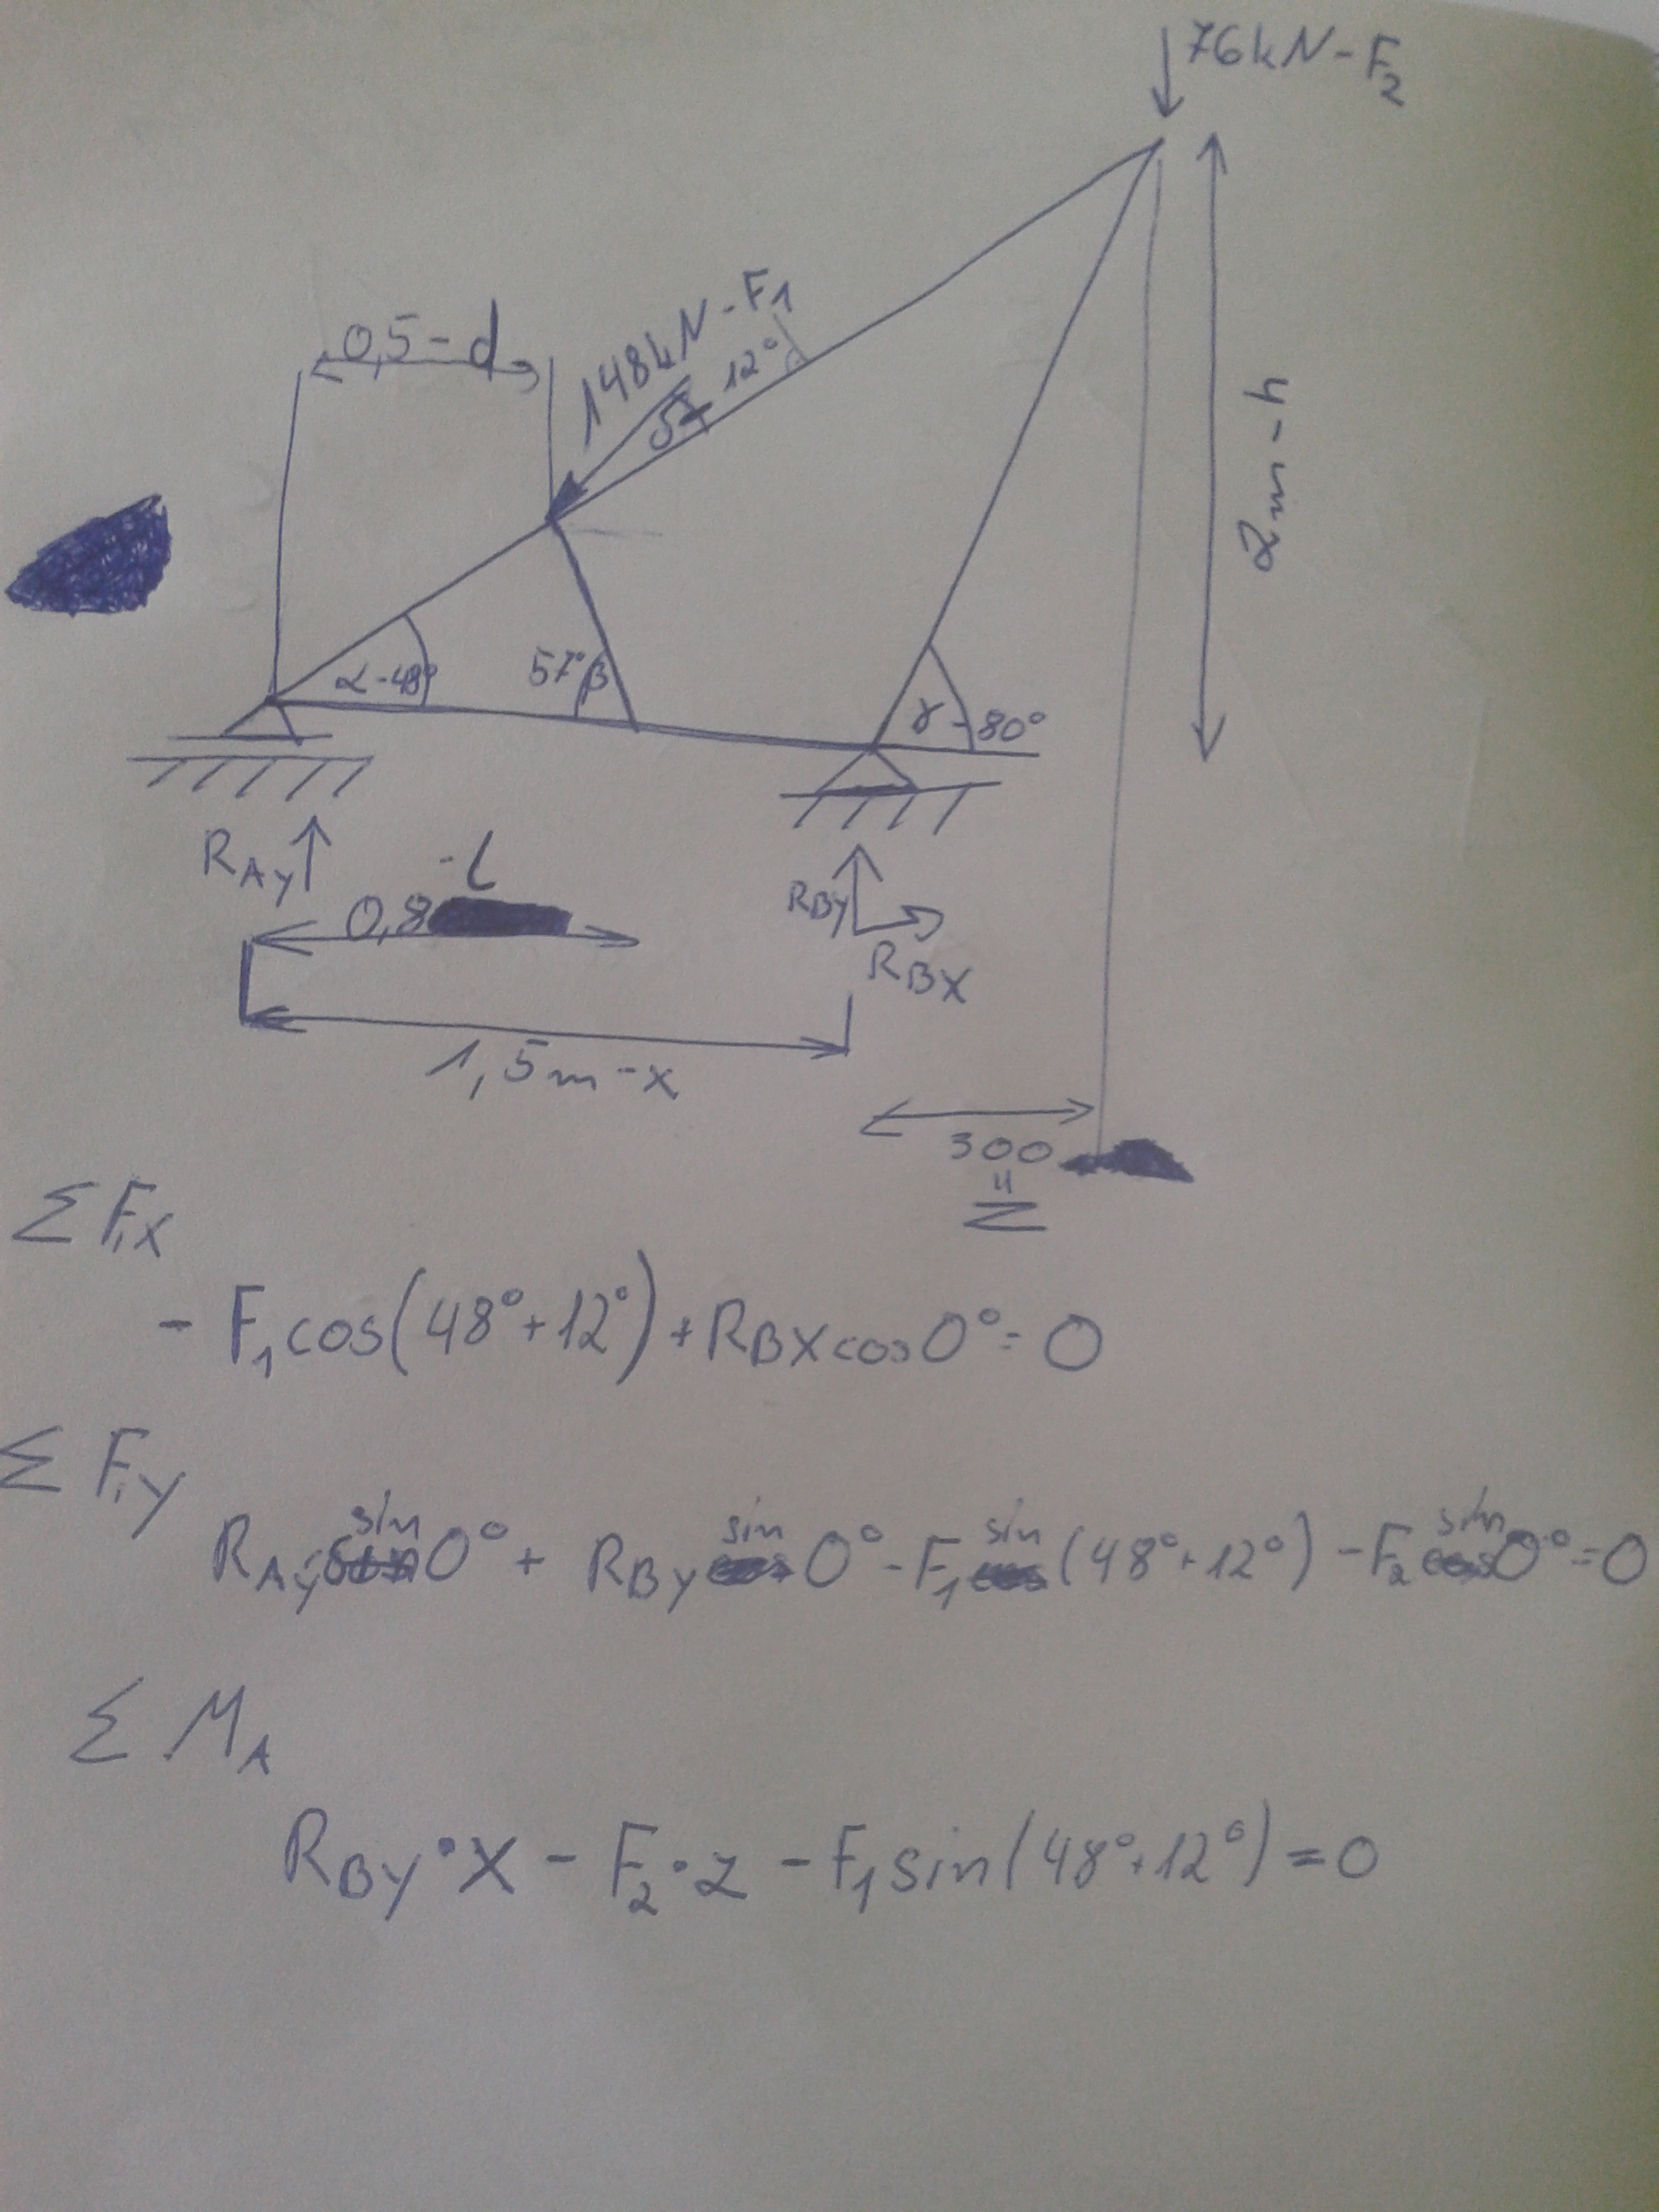 76kN-F2
0,5-d
148kN-F1
12°
2m-h
α-48°
57°β
γ-80°
RAy
-L
0,8
RBy
RBX
1,5m-x
300
=
Z
ΣFix
-F1cos(48°+12°)+RBXcos0°=0
ΣFiy
RAysin0°+RBysin0°-F1sin(48°+12°)-F2sin0°=0
ΣMA
RBy·X-F2·Z-F1sin(48°+12°)=0